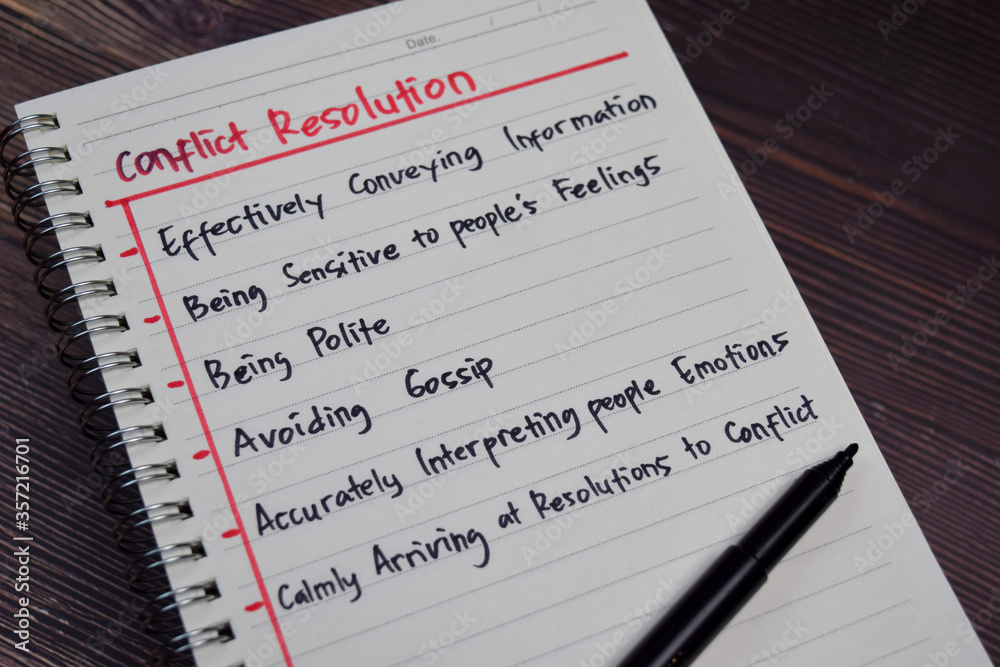 Date.
Conflict Resolution
- Effectively Conveying Information
- Being Sensitive to people's Feelings
- Being Polite
- Avoiding Gossip
- Accurately Interpreting people Emotions
- Calmly Arriving at Resolutions to Conflict
Adobe Stock | #357216701